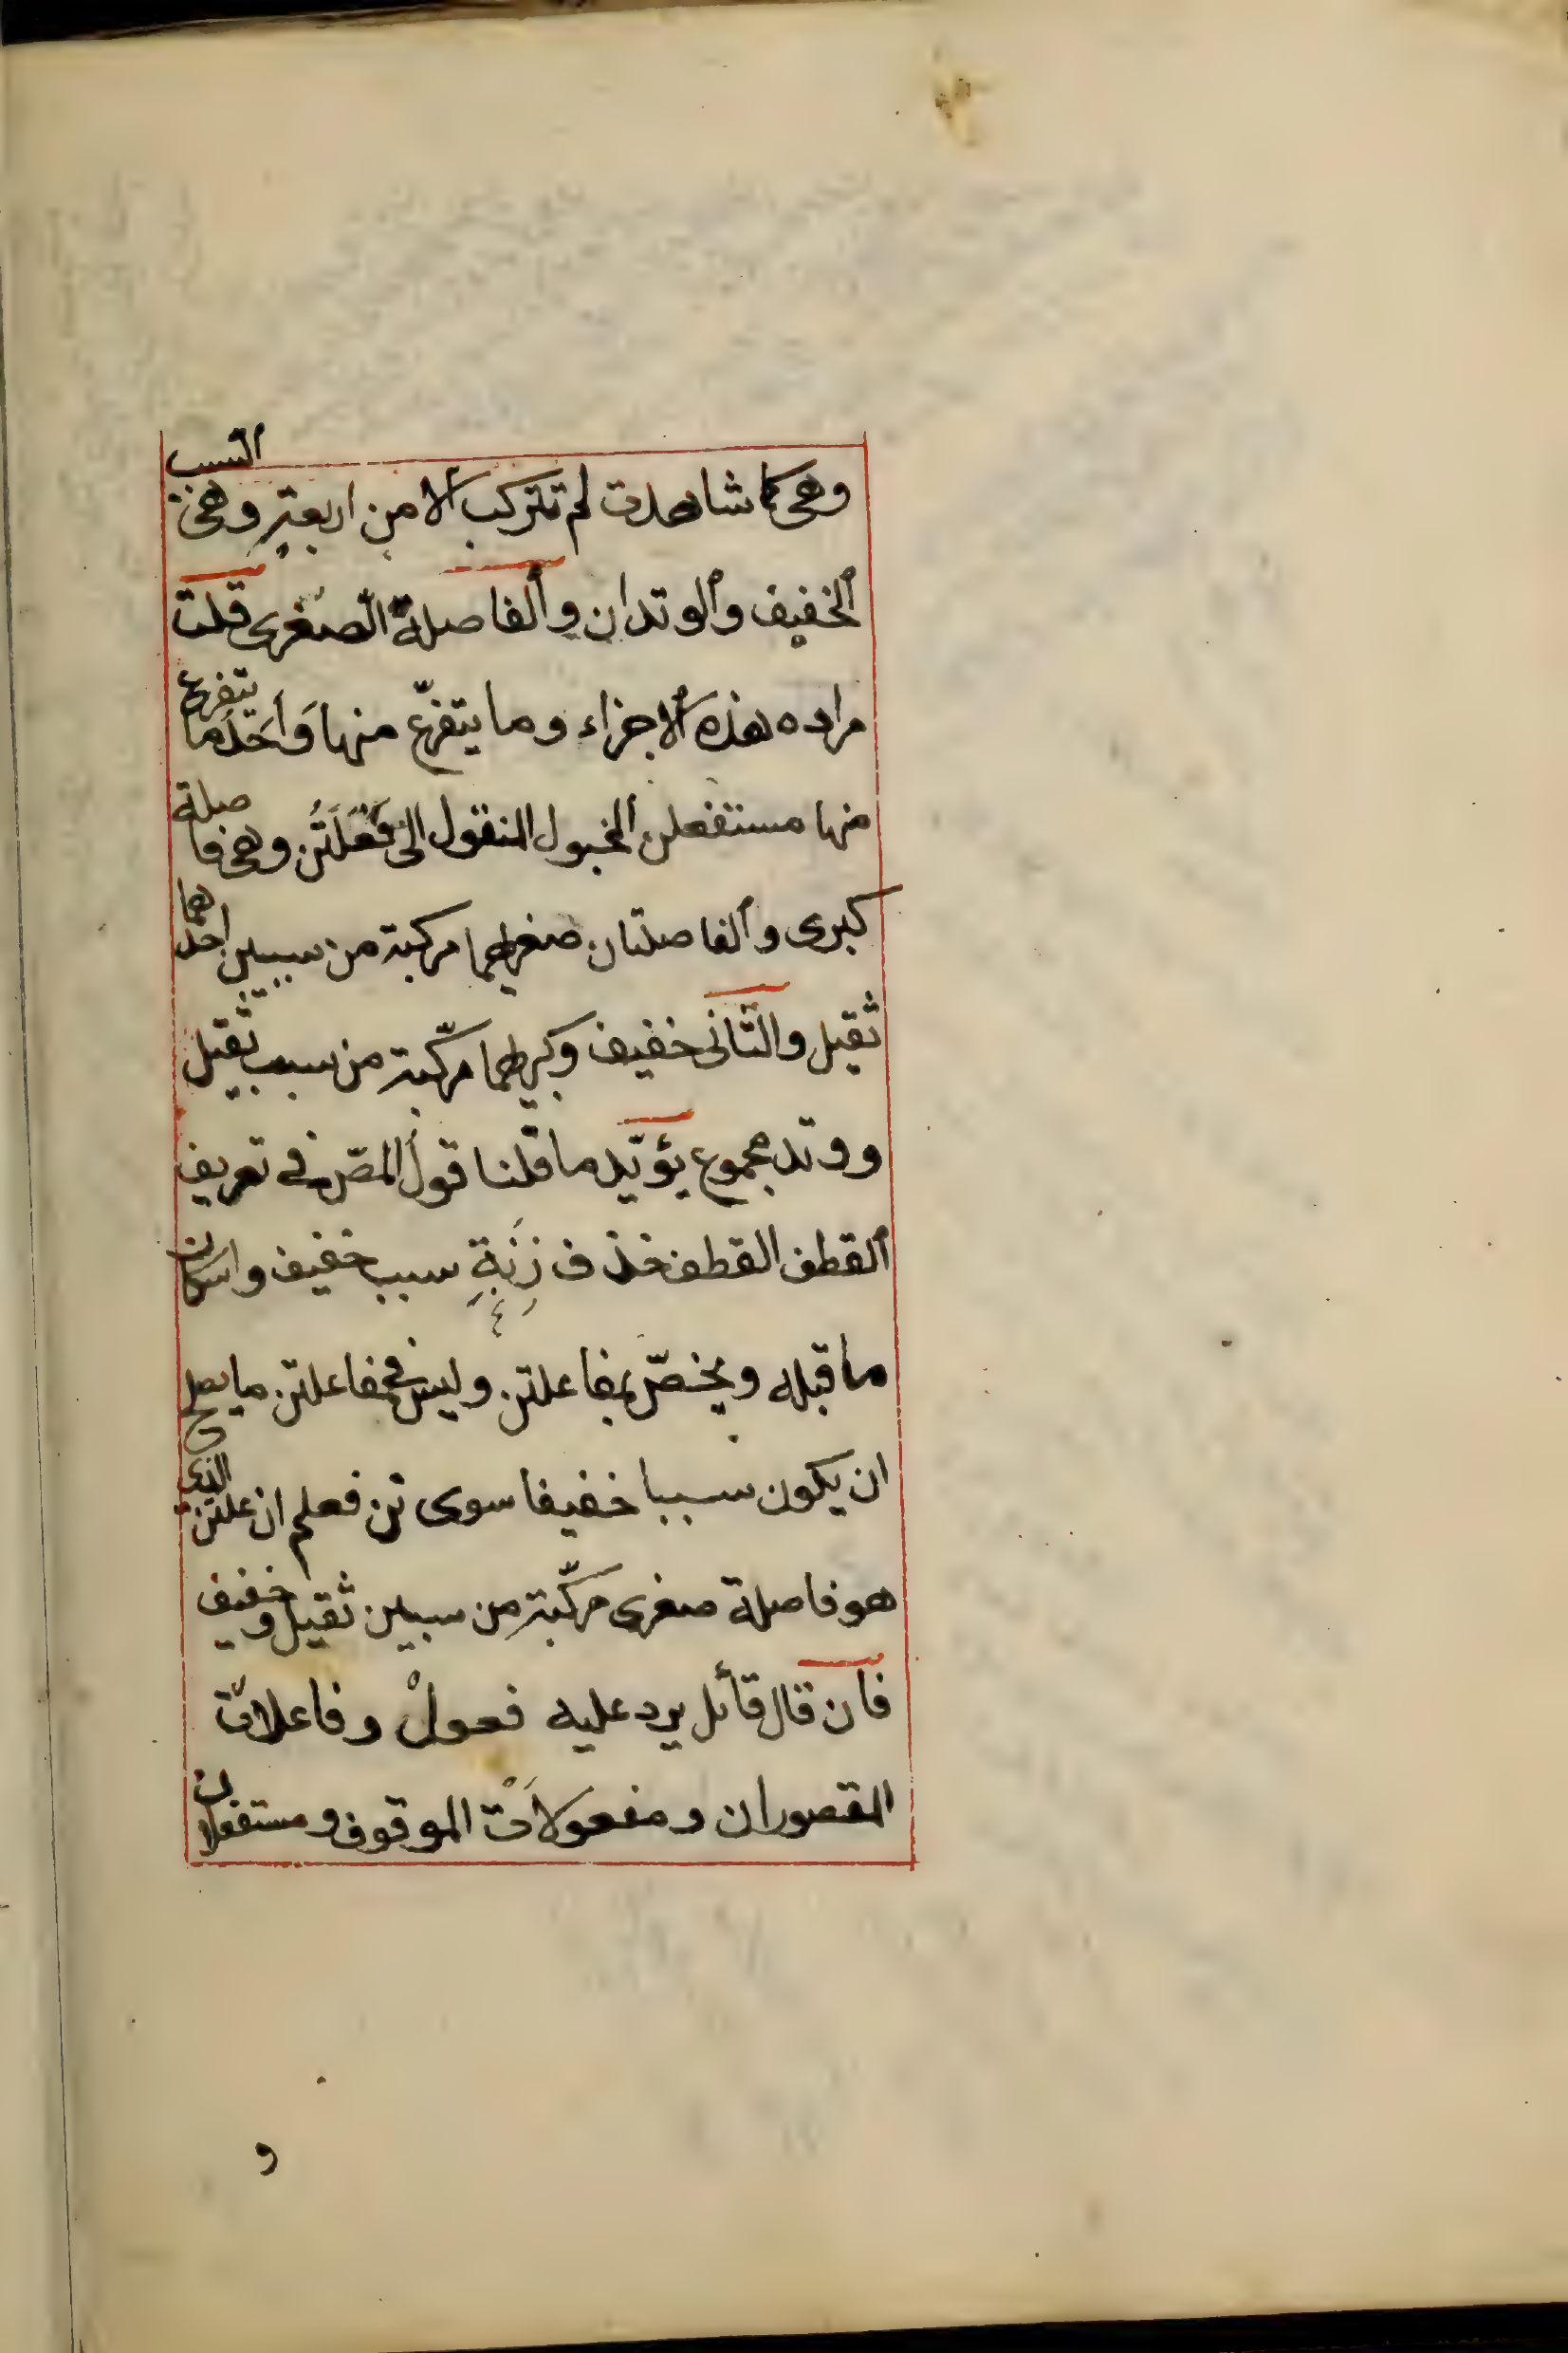 وهى كما شاهدت لم تتركب الا من اربعة وهى السبب
الخفيف والوتدان والفاصلة الصغرى قلت
مراده هذه الاجزاء وما يتفرّع منها وَاَحَدُ ما يتفرع
منها مستفعلن المخبول المنقول الى فَعَلَتُن وهى فاصلة
كبرى والفاصلتان صغريهما مركبة من سببين احدهما
ثقيل والثانى خفيف وكبريهما مركّبة من سبب ثقيل
ووتد مجموع يؤيّد ما قلنا قول المصّ فى تعريف
القطف القطف حذف زِنَةِ سبب خفيف واسكان
ما قبله ويختصّ بمفاعلتن وليس فى مفاعلتن ما يصلح
ان يكون سببا خفيفا سوى تن فعلم ان علتن الذى
هو فاصلة صغرى مركّبة من سببين ثقيل وخفيف
فان قال قائل يرد عليه فعولْ وفاعلاتْ
المقصوران ومفعولَاْت الموقوف ومستفعلان
و